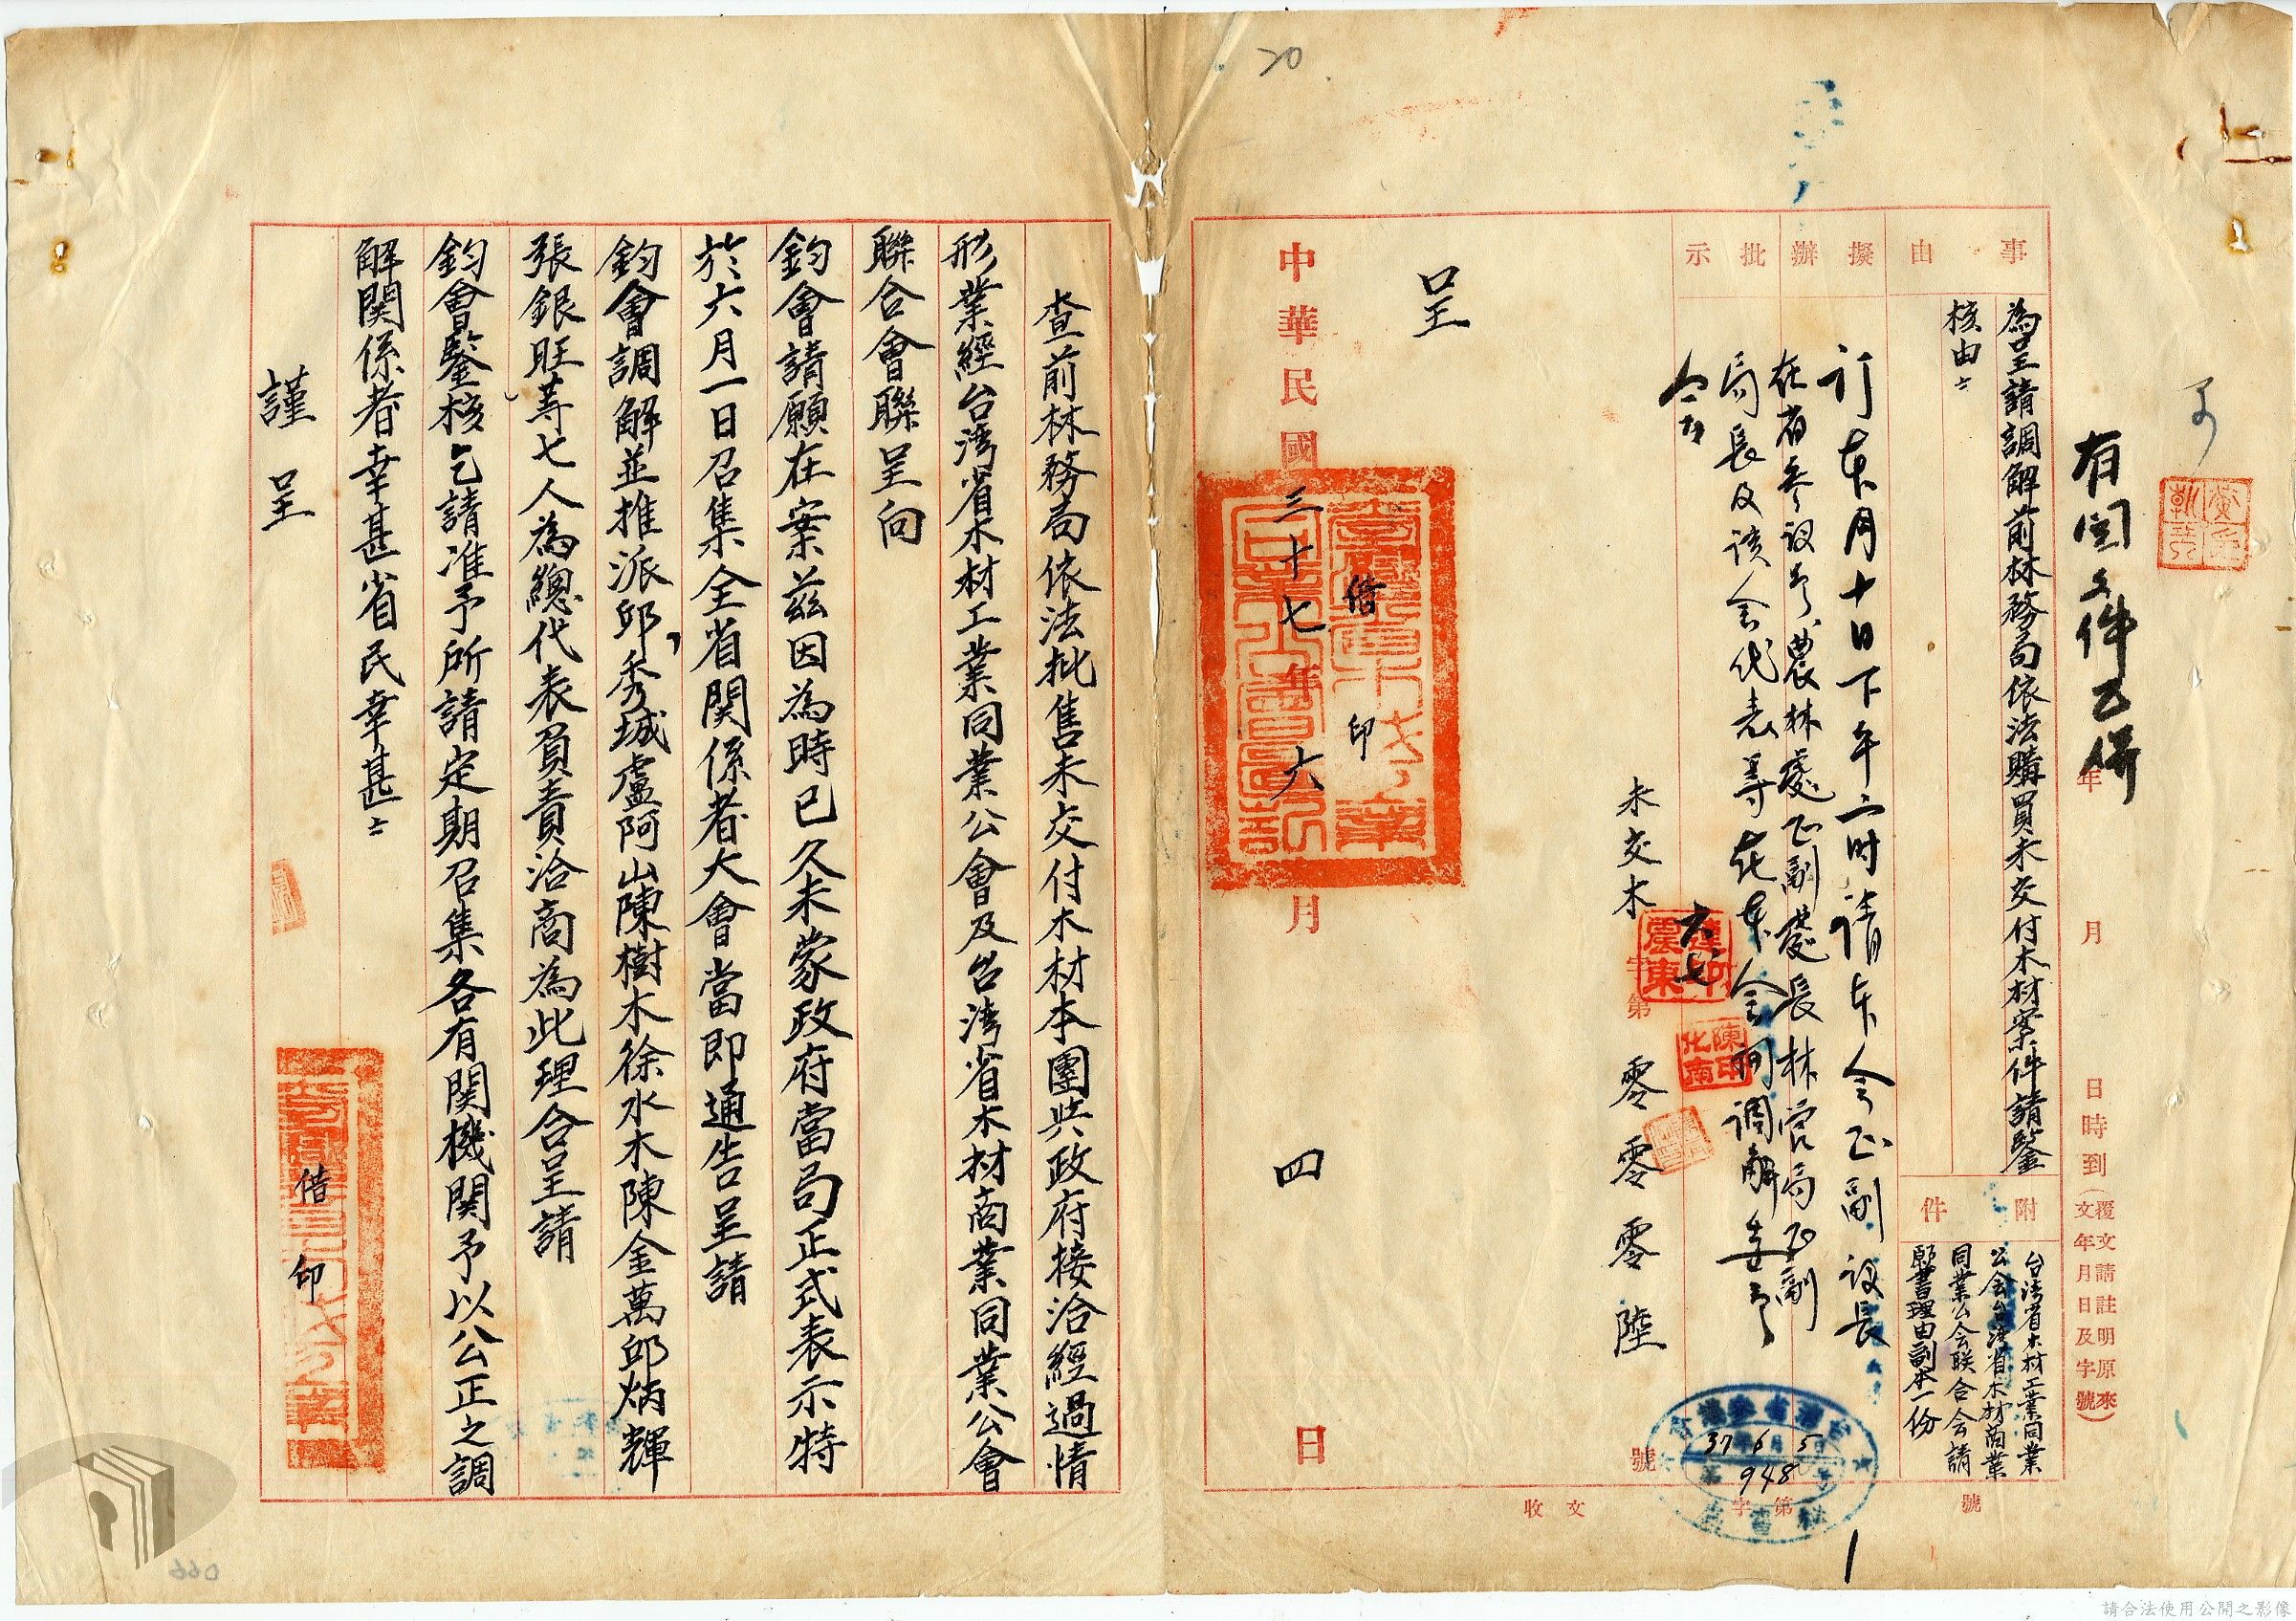 20
有関文件已併
年 月 日 時 到 (覆文請註明原來文年月日及字號)
事由
為呈請調解前林務局依法購買未交付木材案件請鑒
核由
附件
台湾省木材工業同業
公会台湾省木材商業
同業公会联合会請
願書理由副本一份
擬辦
批示
訂本月十日下午二時請本会正副议長
在省参议会、農林處正副處長林管局正副
局長及該会代表等在本会
調解
未交木 字第 零零零陸 號
呈
中華民國三十七年六月四日
借印
37 6 5
948
收文 字第 號
查前林務局依法批售未交付木材本團與政府接洽經過情
形業經台湾省木材工業同業公會及台湾省木材商業同業公會
聯合會聯呈向
鈞會請願在案茲因為時已久未蒙政府當局正式表示特
於六月一日召集全省関係者大會當即通告呈請
鈞會調解並推派邱秀城盧阿山陳樹木徐水木陳金萬邱炳輝
張銀旺等七人為總代表負責洽商為此理合呈請
鈞會鑒核乞請准予所請定期召集各有関機関予以公正之調
解関係者幸甚省民幸甚
謹呈
借印
066
請合法使用公開之影像